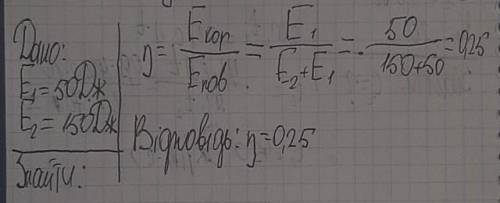 Дано:
E₁=50Дж
E₂=150Дж
Знайти:
η = Eкор / Eпов = E₁ / E₂+E₁ = 50 / 150+50 = 0,25
Відповідь: η=0,25